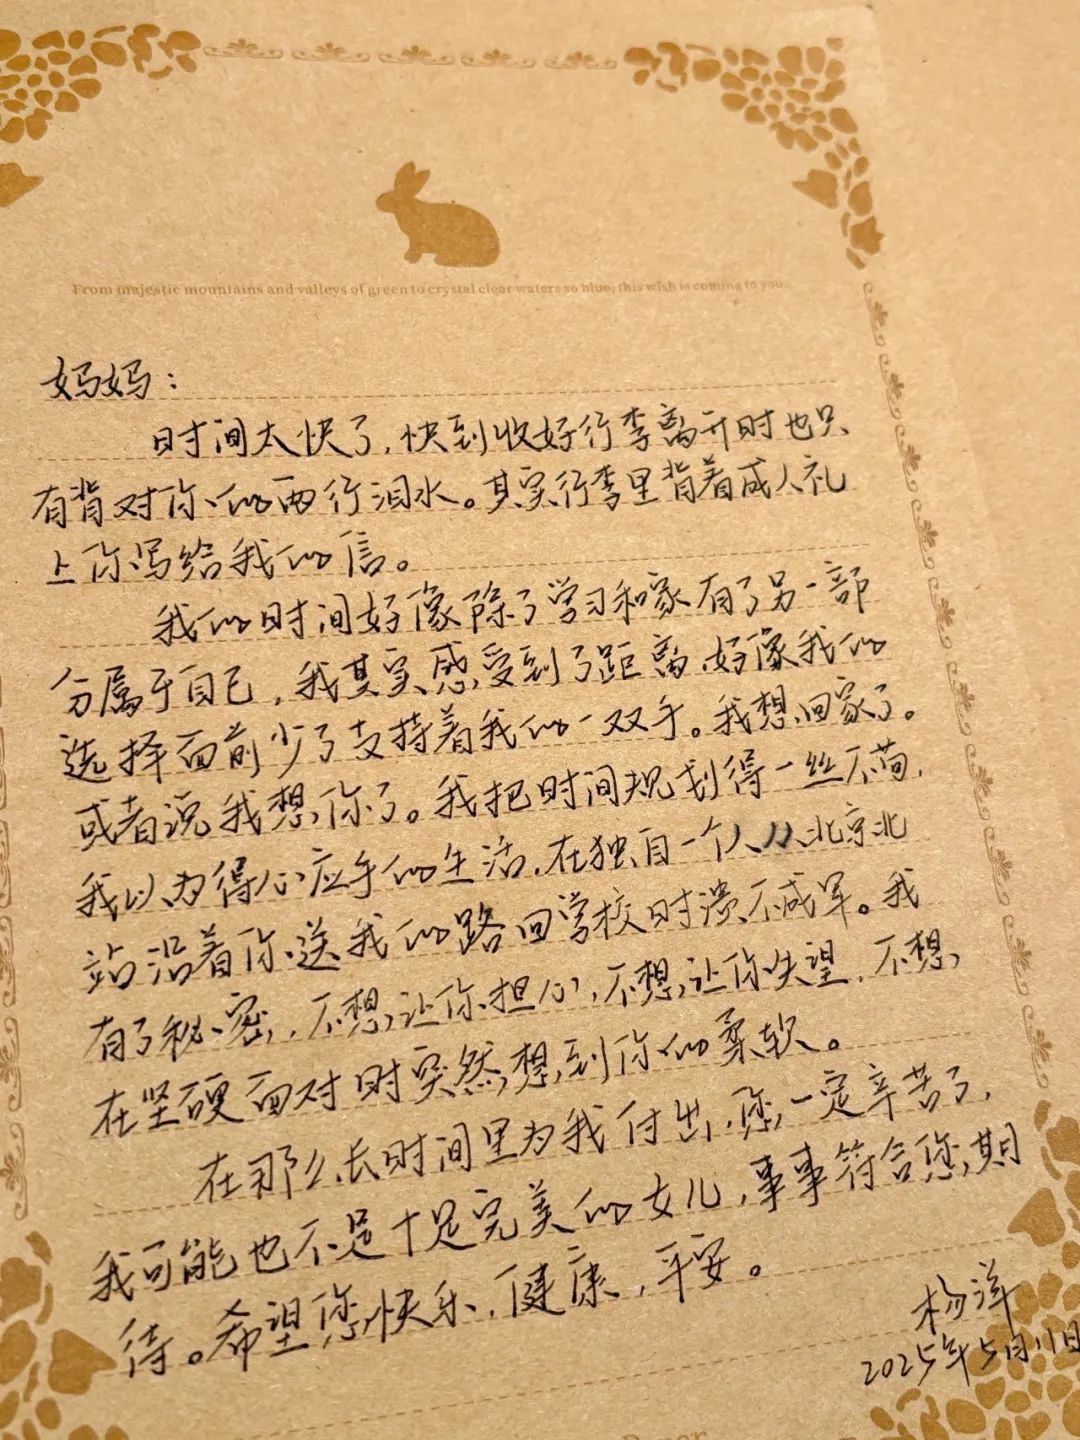 From majestic mountains and valleys of green to crystal clear waters so blue, this wish is coming to you.
妈妈：
时间太快了，快到收好行李离开时也只
有背对你的两行泪水。其实行李里背着成人礼
上你写给我的信。
我的时间好像除了学习和家有了另一部
分属于自己，我其实感受到了距离，好像我的
选择面前少了支持着我的一双手。我想回家了。
或者说我想你了。我把时间规划得一丝不苟，
我以为得心应手的生活，在独自一个人从北京北
站沿着你送我的路回学校时溃不成军。我
有了秘密，不想让你担心，不想让你失望，不想
在坚硬面对时突然想到你的柔软。
在那么长时间里为我付出，您一定辛苦了，
我可能也不是十足完美的女儿，事事符合您期
待。希望您快乐，健康，平安。
杨洋
2025年5月11日